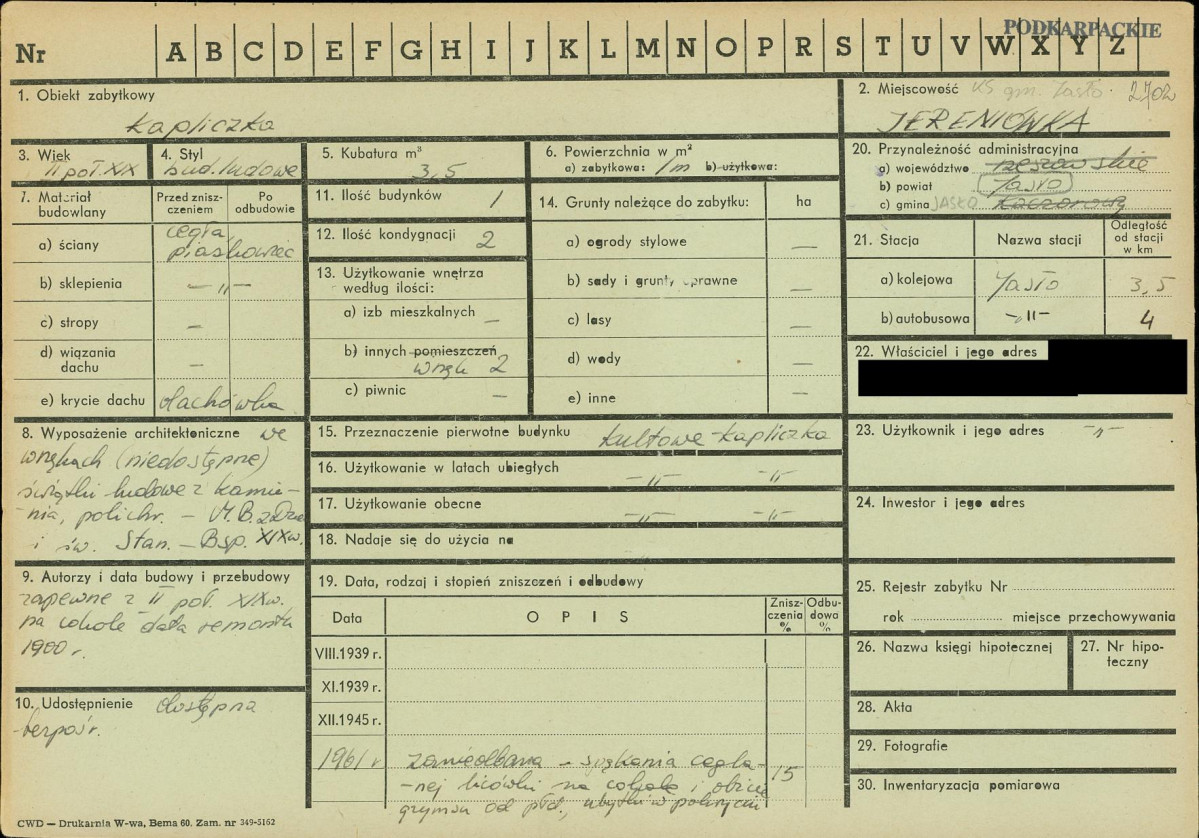 PODKARPACKIE
Nr A B C D E F G H I J K L M N O P R S T U V W X Y Z
1. Obiekt zabytkowy
kapliczka
2. Miejscowość KS gm. Jasło. 2702
JERENIÓWKA
3. Wiek
II poł. XIX
4. Styl
bud. ludowe
5. Kubatura m³
3,5
6. Powierzchnia w m²
a) zabytkowa: 1m b) użytkowa:
7. Materiał budowlany
Przed zniszczeniem
Po odbudowie
a) ściany
cegła,
piaskowiec
b) sklepienia
—"—
c) stropy
—
d) wiązania dachu
—
e) krycie dachu dachówka
8. Wyposażenie architektoniczne we
wnękach (niedostępne)
świątki ludowe z kamie-
-nia, polichr. – M.B. z Dzie
i św. Stan. – Bsp. XIXw.
9. Autorzy i data budowy i przebudowy
zapewne z II poł. XIXw.
na cokole data remontu
1900 r.
10. Udostępnienie dostępna
bezpośr.
11. Ilość budynków 1
12. Ilość kondygnacji 2
13. Użytkowanie wnętrza
według ilości:
a) izb mieszkalnych —
b) innych pomieszczeń
wnęk 2
c) piwnic —
14. Grunty należące do zabytku: ha
a) ogrody stylowe —
b) sady i grunty uprawne —
c) lasy —
d) wody —
e) inne —
15. Przeznaczenie pierwotne budynku kultowe-kapliczka
16. Użytkowanie w latach ubiegłych —"— —"—
17. Użytkowanie obecne —"— —"—
18. Nadaje się do użycia na
19. Data, rodzaj i stopień zniszczeń i odbudowy
Data OPIS Zniszczenia % Odbudowa %
VIII.1939 r.
XI.1939 r.
XII.1945 r.
1961 r zaniedbana – spękania cegla-
-nej licówki na cokole i obicie
gzymsu od płd., ubytki w pokryciu
15
20. Przynależność administracyjna
a) województwo rzeszowskie
b) powiat Jasło
c) gmina JASŁO
21. Stacja Nazwa stacji Odległość od stacji w km
a) kolejowa Jasło 3,5
b) autobusowa —"— 4
22. Właściciel i jego adres
23. Użytkownik i jego adres —"—
24. Inwestor i jego adres
25. Rejestr zabytku Nr
rok miejsce przechowywania
26. Nazwa księgi hipotecznej
27. Nr hipoteczny
28. Akta
29. Fotografie
30. Inwentaryzacja pomiarowa
CWD — Drukarnia W-wa, Bema 60. Zam. nr 349-5162